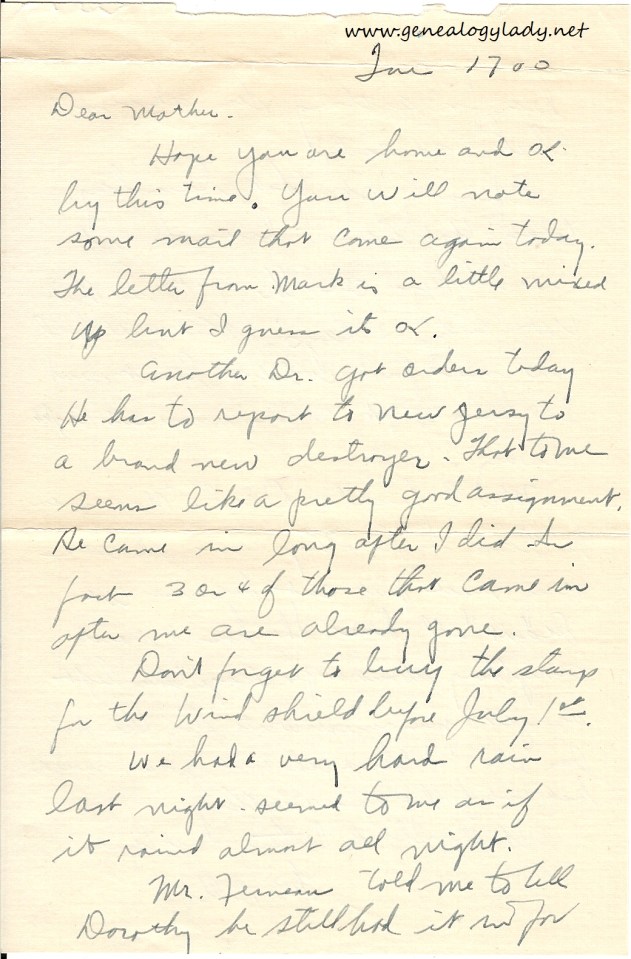 www.genealogylady.net
Tue 1700
Dear Mother.
Hope you are home and OK
by this time. You will note
some mail that come again today.
The letter from Mark is a little mixed
up but I guess its OK.
Another Dr. got orders today
He has to report to New Jersy to
a brand new destroyer. That to me
seems like a pretty good assignment.
He came in long after I did In
fact 3 or 4 of those that came in
after me are already gone.
Don't forget to buy the stamp
for the Wind shield before July 1st.
We had a very hard rain
last night. seemed to me as if
it rained almost all night.
Mr. Ferneau told me to tell
Dorothy he still had it in for